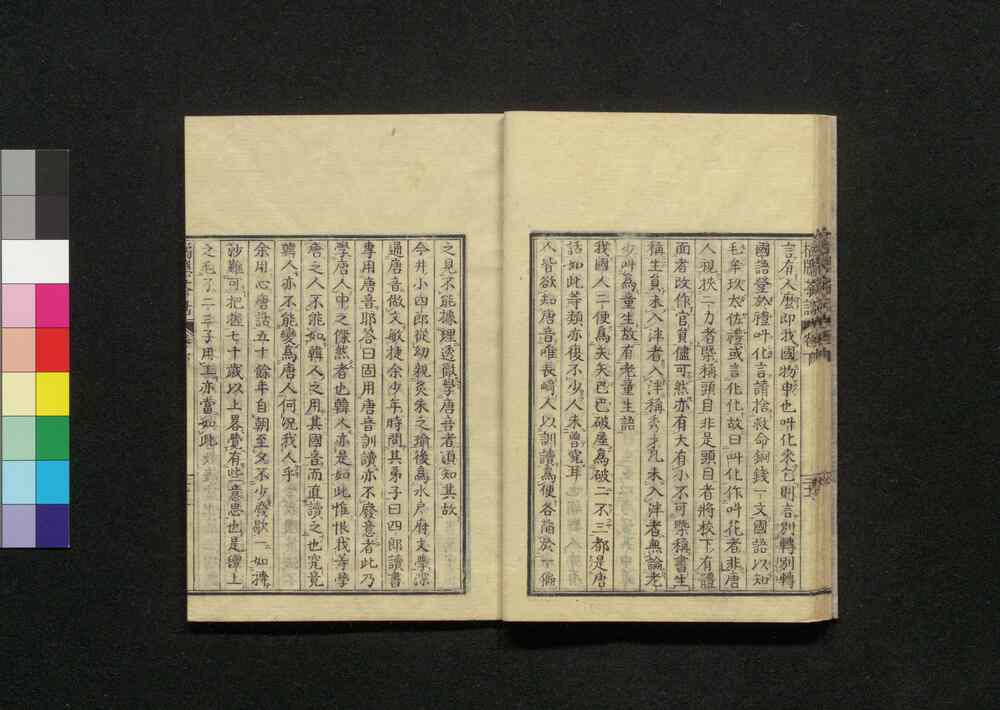 言有人麽即我國物申也叫化來乞則言別轉別轉
國語發於禮叫化言請捨救命銅錢一文國語以知
毛牟玖太佐禮或言化化故曰叫化作叫花者非唐
人視扶二力者槩稱頭目非是頭目者將校下有體
面者改作官負儘可然亦有大有小不可槩稱書生
稱生負未入泮者入泮稱秀才凡未入泮者無論老
少叫為童生故有老童生語
我國人二便為矢矢巴巴破屋為破二不三都是唐
話如此等類亦復不少人未曾究耳
人皆欲知唐音唯長崎人以訓讀為便各
之見不能據理透徹學唐音者須知其故
今井小四郎從幼親炙朱之瑜後為水戶府文學深
通唐音做文敏捷余少年時問其弟子曰四郎讀書
專用唐音耶答曰固用唐音訓讀亦不廢意者此乃
學唐人中之傑然者也韓人亦是如此惟恨我等學
唐之人不能如韓人之用其國音而直讀之也究竟
韓人亦不能變為唐人何況我人乎
余用心唐話五十餘年自朝至夕不少廢歇一如摶
沙難可把握七十歲以上畧覺有些意思也是纏上
之毛了二三子用工亦當如此